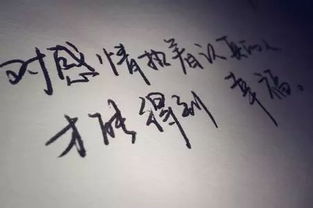 对感情执着认真的人
才能得到 幸福。